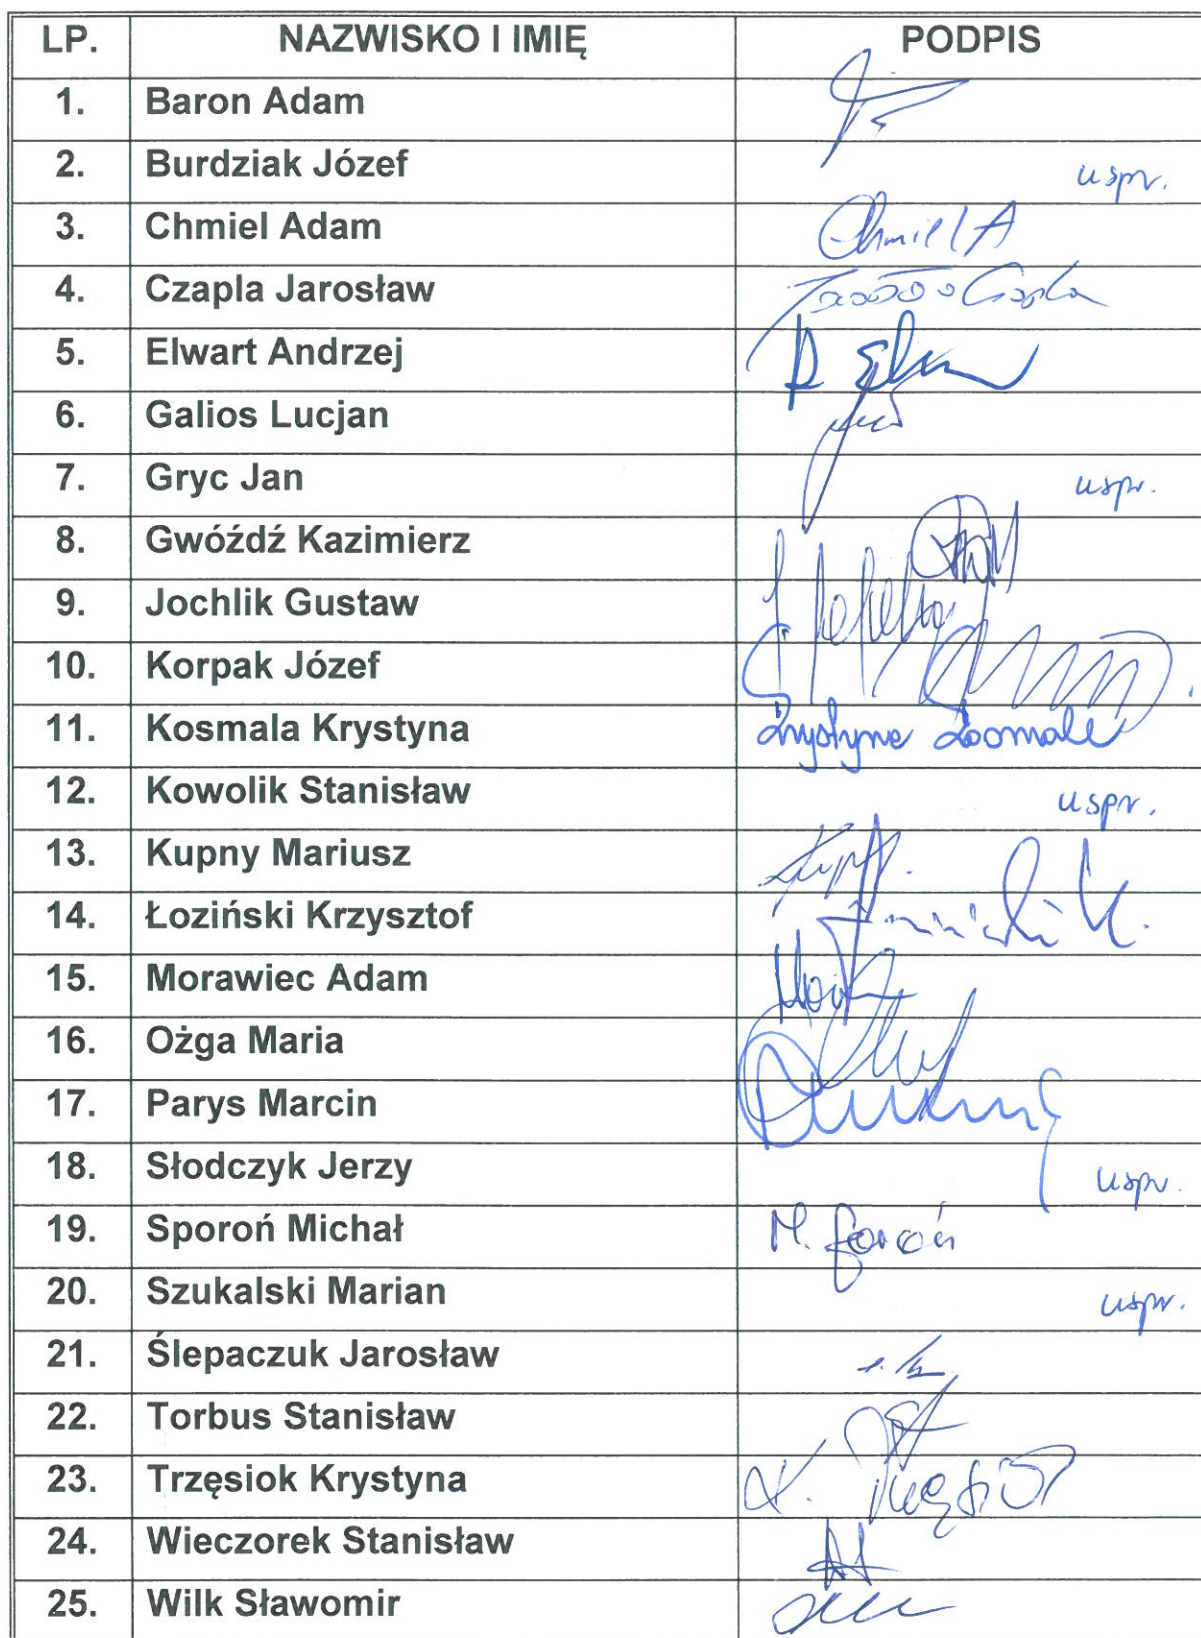 LP. NAZWISKO I IMIĘ PODPIS
1. Baron Adam
2. Burdziak Józef uspr.
3. Chmiel Adam Chmiel A
4. Czapla Jarosław Czapla
5. Elwart Andrzej
6. Galios Lucjan
7. Gryc Jan uspr.
8. Gwóźdź Kazimierz
9. Jochlik Gustaw
10. Korpak Józef
11. Kosmala Krystyna Krystyna Kosmala
12. Kowolik Stanisław uspr.
13. Kupny Mariusz
14. Łoziński Krzysztof
15. Morawiec Adam
16. Ożga Maria
17. Parys Marcin
18. Słodczyk Jerzy uspr.
19. Sporoń Michał M. Sporoń
20. Szukalski Marian uspr.
21. Ślepaczuk Jarosław
22. Torbus Stanisław
23. Trzęsiok Krystyna K. Trzęsiok
24. Wieczorek Stanisław
25. Wilk Sławomir